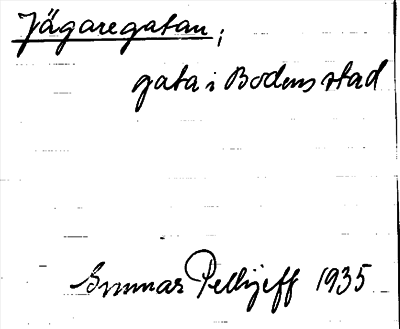 Jägaregatan;
gata i Bodens stad
Gunnar Pellijeff 1935